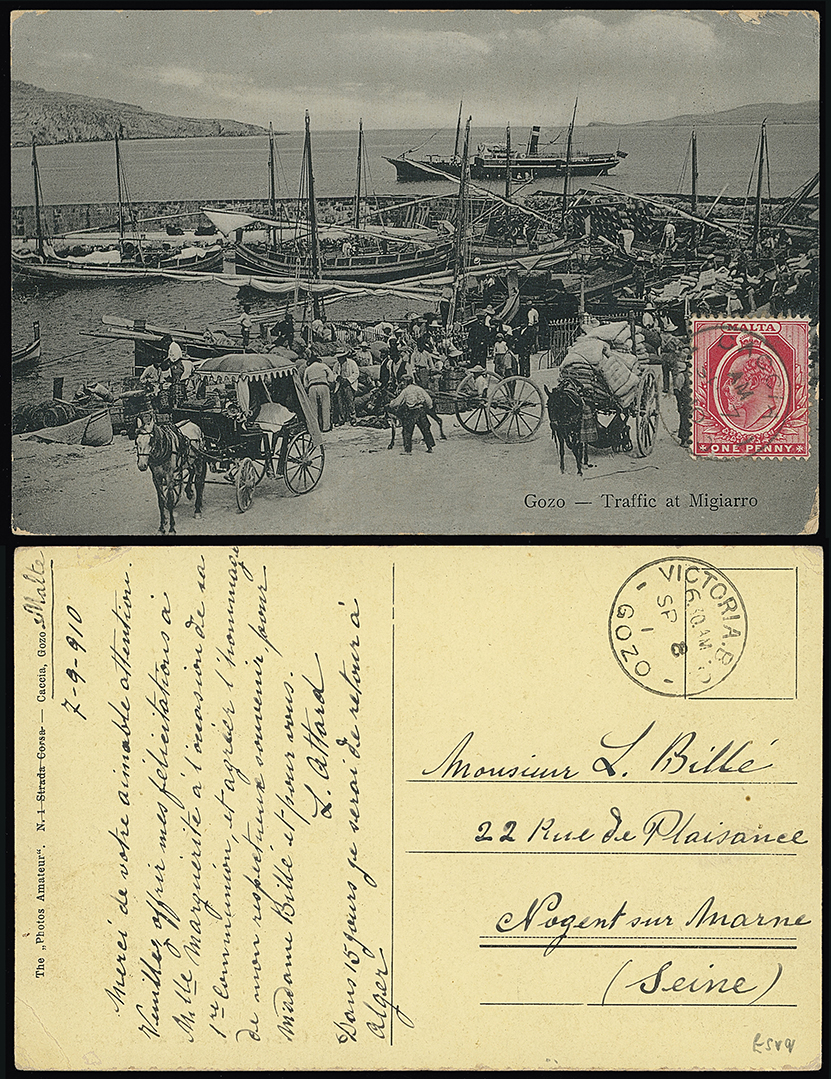 MALTA
ONE PENNY
Gozo — Traffic at Migiarro
The „Photos Amateur“. N. 1 Strada Corsa — Caccia, Gozo Malte
7-9-910
Merci de votre aimable attention.
Veuillez offrir mes félicitations à
Mlle Marguerite à l'occasion de sa
1re Communion, et agréer l'hommage
de mon respectueux souvenir, pour
Madame Billé et pour vous.
L. Attard
Dans 15 jours je serai de retour à
Alger
VICTORIA.B
6.30.AM
SP 8
GOZO
Monsieur L. Billé
22 Rue de Plaisance
Nogent sur Marne
(Seine)